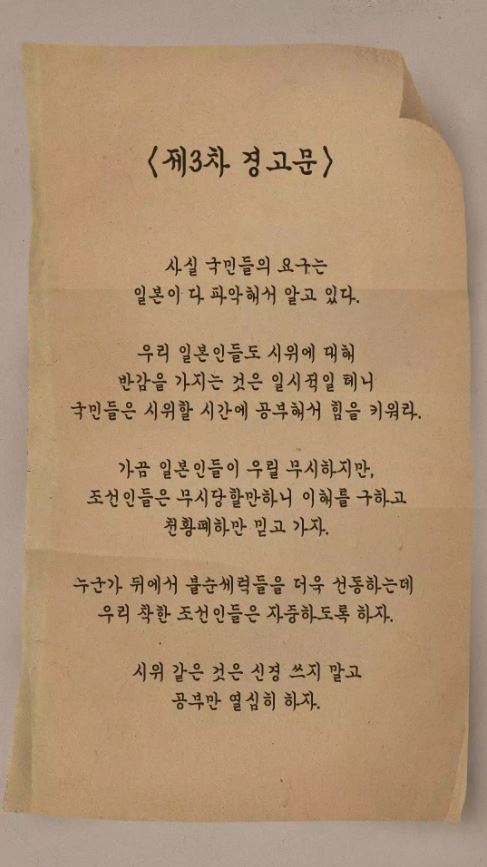 <제3차 경고문>
사실 국민들의 요구는
일본이 다 파악해서 알고 있다.
우리 일본인들도 시위에 대해
반감을 가지는 것은 일시적일 테니
국민들은 시위할 시간에 공부해서 힘을 키워라.
가끔 일본인들이 우릴 무시하지만,
조선인들은 무시당할만하니 이해를 구하고
천황폐하만 믿고 가자.
누군가 뒤에서 불순세력들을 더욱 선동하는데
우리 착한 조선인들은 자중하도록 하자.
시위 같은 것은 신경 쓰지 말고
공부만 열심히 하자.